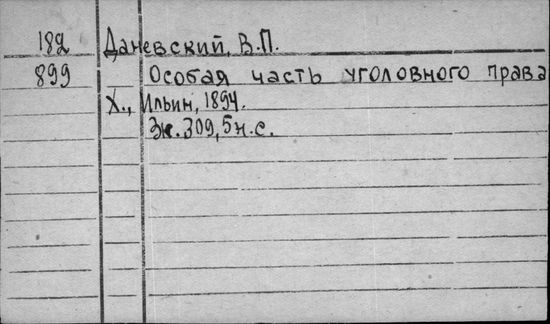 182 Даневский, В.П.
899 Особая часть уголовного права
Х., Ильин, 1894.
309, 5 н.с.